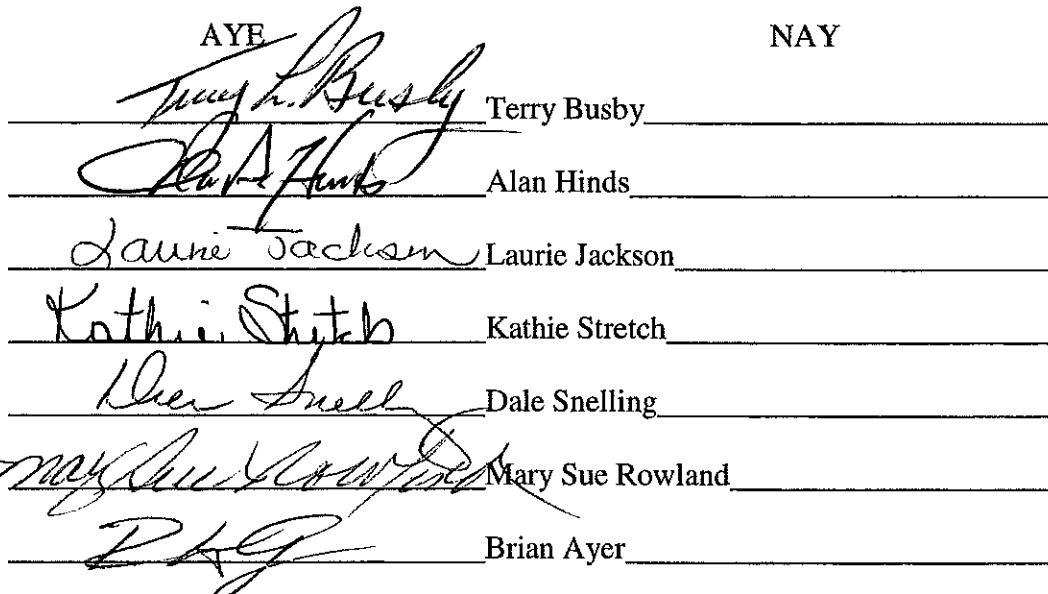 AYE NAY
Terry L. Busby Terry Busby
Alan Hinds Alan Hinds
Laurie Jackson Laurie Jackson
Kathie Stretch Kathie Stretch
Snelling Dale Snelling
Mary Sue Rowland Mary Sue Rowland
Brian Ayer